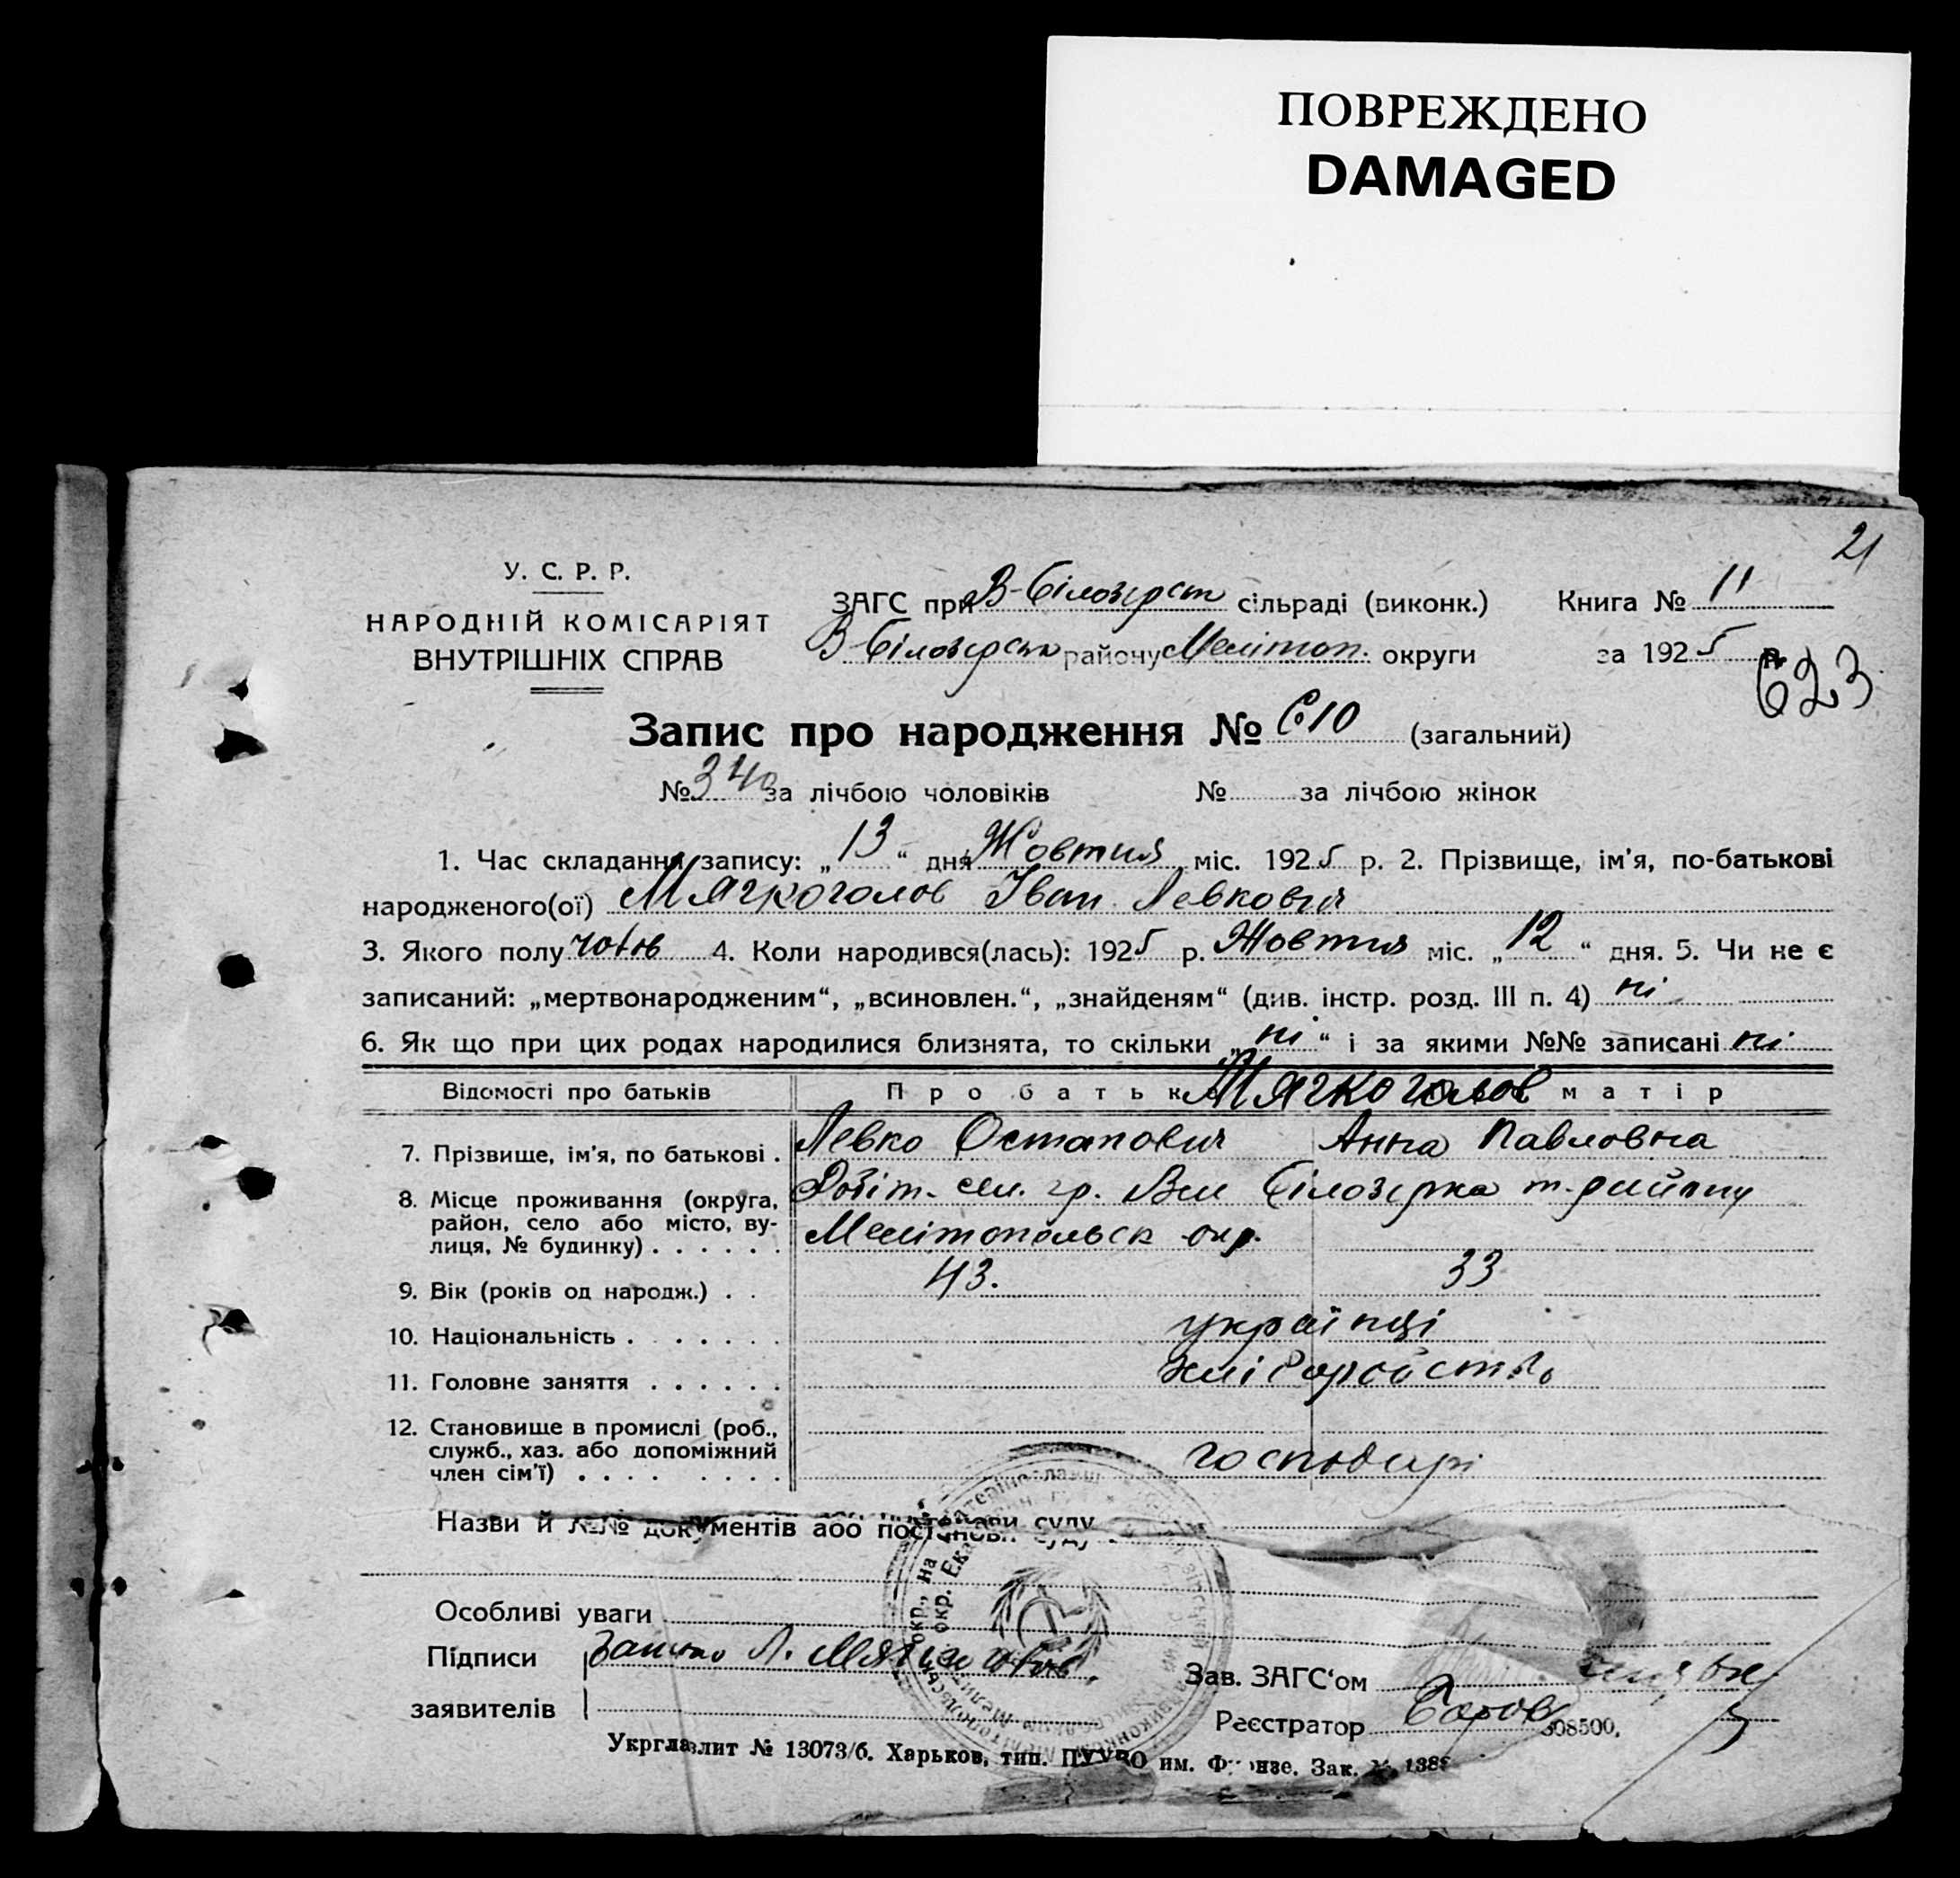 ПОВРЕЖДЕНО
DAMAGED
21
У. С. Р. Р.
НАРОДНІЙ КОМІСАРІЯТ
ВНУТРІШНІХ СПРАВ
ЗАГС при В-Білозерст сільраді (виконк.) Книга № 11
В-Білозерськ району Мелітоп. округи за 1925 р.
623
Запис про народження № 610 (загальний)
№ 340 за лічбою чоловіків № за лічбою жінок
1. Час складання запису: „13“ дня Жовтня міс. 1925 р. 2. Прізвище, ім'я, по-батькові
народженого(ої) Мягкоголов Іван Левкович
3. Якого полу чолов 4. Коли народився(лась): 1925 р. Жовтня міс. „12“ дня. 5. Чи не є
записаний: „мертвонародженим“, „всиновлен.“, „знайденям“ (див. інстр. розд. III п. 4) ні
6. Як що при цих родах народилися близнята, то скільки „ні“ і за якими №№ записані ні
Відомості про батьків Про батьк Мягкоголов матір
7. Прізвище, ім'я, по батькові . Левко Остапович Анна Павловна
8. Місце проживання (округа, сел. гр. Вел Білозерка т. району
район, село або місто, ву-
лиця, № будинку) . . . . . . Мелітопольск окр.
9. Вік (років од народж.) . . 43. 33
10. Національність . . . . . . . українці
11. Головне заняття . . . . . . хліборобство
12. Становище в промислі (роб.,
служб., хаз. або допоміжний
член сім'ї) . . . . . . . . господарі
Назви й №№ документів або постанови суду
Особливі уваги
Підписи Л. Мягкоголов.
заявителів
Зав. ЗАГС'ом
Реєстратор 308500.
Укрглавлит № 13073/6. Харьков, тип. ПУУВО им. Фрунзе. Зак. № 1388